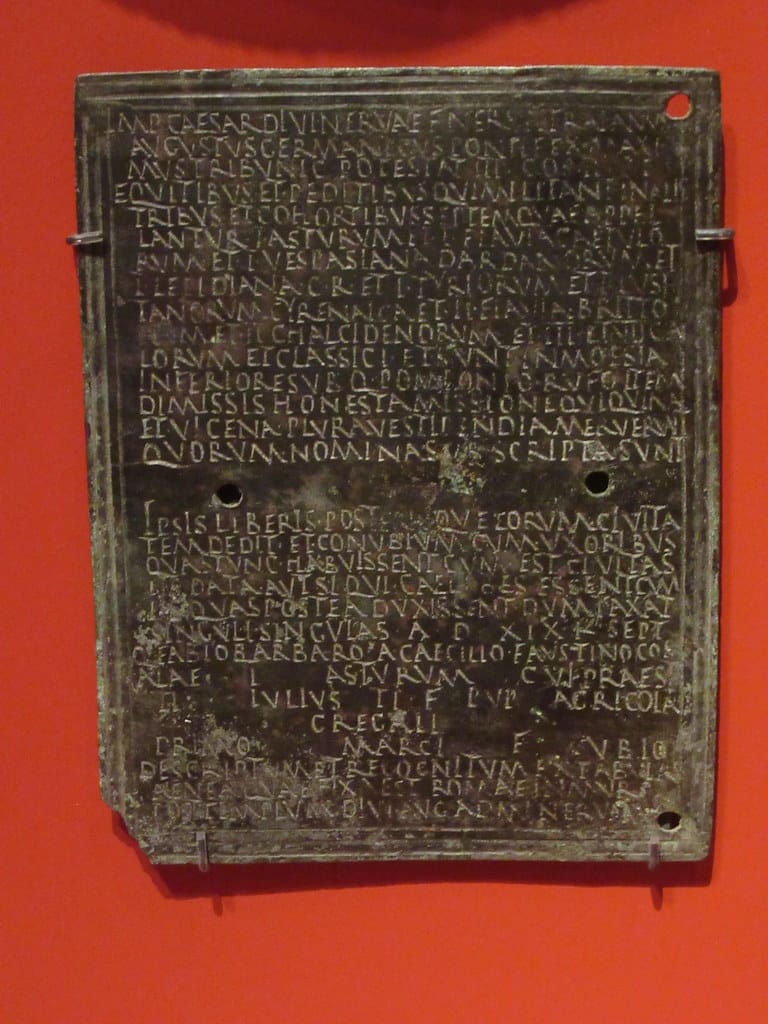 CAESAR DIVI NERVAE F
AVGVSTVS GERMANICVS PONTIFEX MAXI
MVS TRIBVNIC POTEST
EQVITIBVS ET PEDITIBVS QVI MILITANT IN ALIS
TRIBVS ET COHORTIBVS SEPTEM QVAE APPEL
LANTVR I ASTVRVM ET I FLAVIA GAETVLO
RVM ET I VESPASIANA DARDANORVM ET
I LEPIDIANA C R ET I TYRIORVM ET I LVSI
TANORVM CYRENAICA ET II FLAVIA BRITTO
NVM ET II CHALCIDENORVM ET
LORVM ET CLASSICI ET SVNT IN MOESIA
INFERIORE SVB Q POMPONIO RVFO ITEM
DIMISSIS HONESTA MISSIONE QVI QVINA
ET VICENA PLVRAVE STIPENDIA MERVERVNT
QVORVM NOMINA SVBSCRIPTA SVNT
IPSIS LIBERIS POSTERISQVE EORVM CIVITA
TEM DEDIT ET CONVBIVM CVM VXORIBVS
QVAS TVNC HABVISSENT CVM EST CIVITAS
IIS DATA AVT SI QVI CAELIBES ESSENT CVM
IIS QVAS POSTEA DVXISSENT DVMTAXAT
SINGVLI SINGVLAS A D XIX K SEPT
Q FABIO BARBARO A CAECILIO FAVSTINO COS
ALAE I ASTVRVM CVI PRAEST
TI IVLIVS TI F PVP AGRICOLA
GREGALI
MARCI F
DESCRIPTVM ET RECOGNITVM EX TABVLA
AENEA QVAE FIXA EST ROMAE IN MVRO
POST TEMPLVM DIVI AVG AD MINERVAM